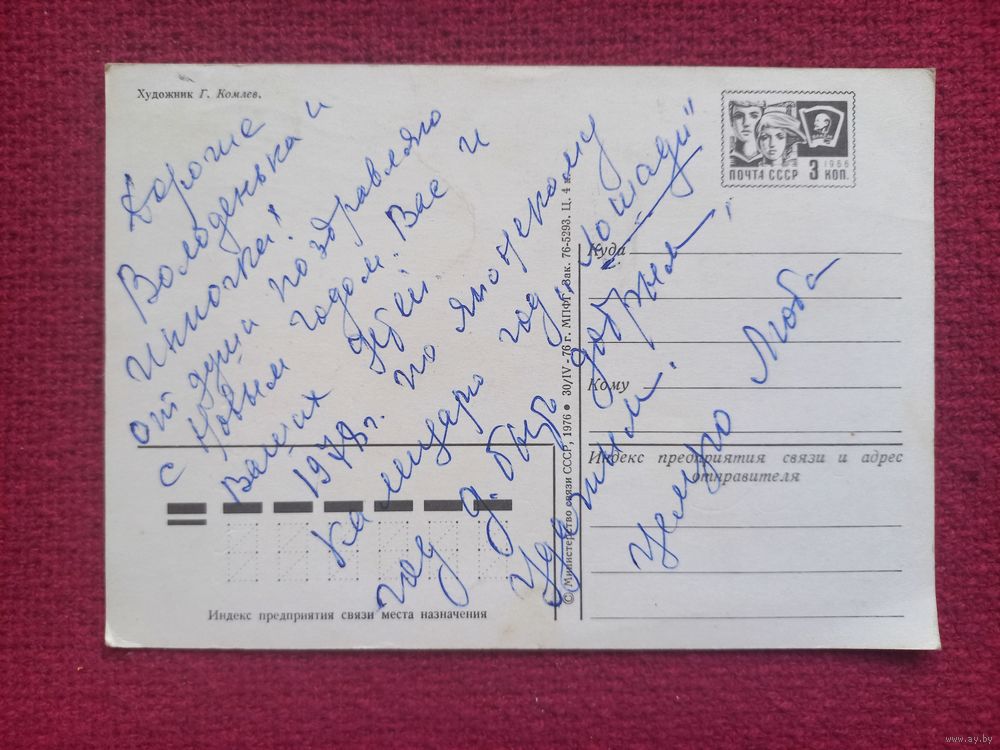 Художник Г. Комлев.
ПОЧТА СССР 3 КОП.
1966
Дорогие
Володенька и
Инночка!
от души поздравляю
с Новым годом Вас и
Ваших детей.
1978 г.
по японскому
календарю год „Лошади"
год д. быть добрым,
удачным.
Целую Люба
Куда
Кому
Индекс предприятия связи и адрес
отправителя
Индекс предприятия связи места назначения
© Министерство связи СССР, 1976 ● 30/IV-76 г. МПФГ, Зак. 76-5293. Ц. 4 к.
www.ay.by